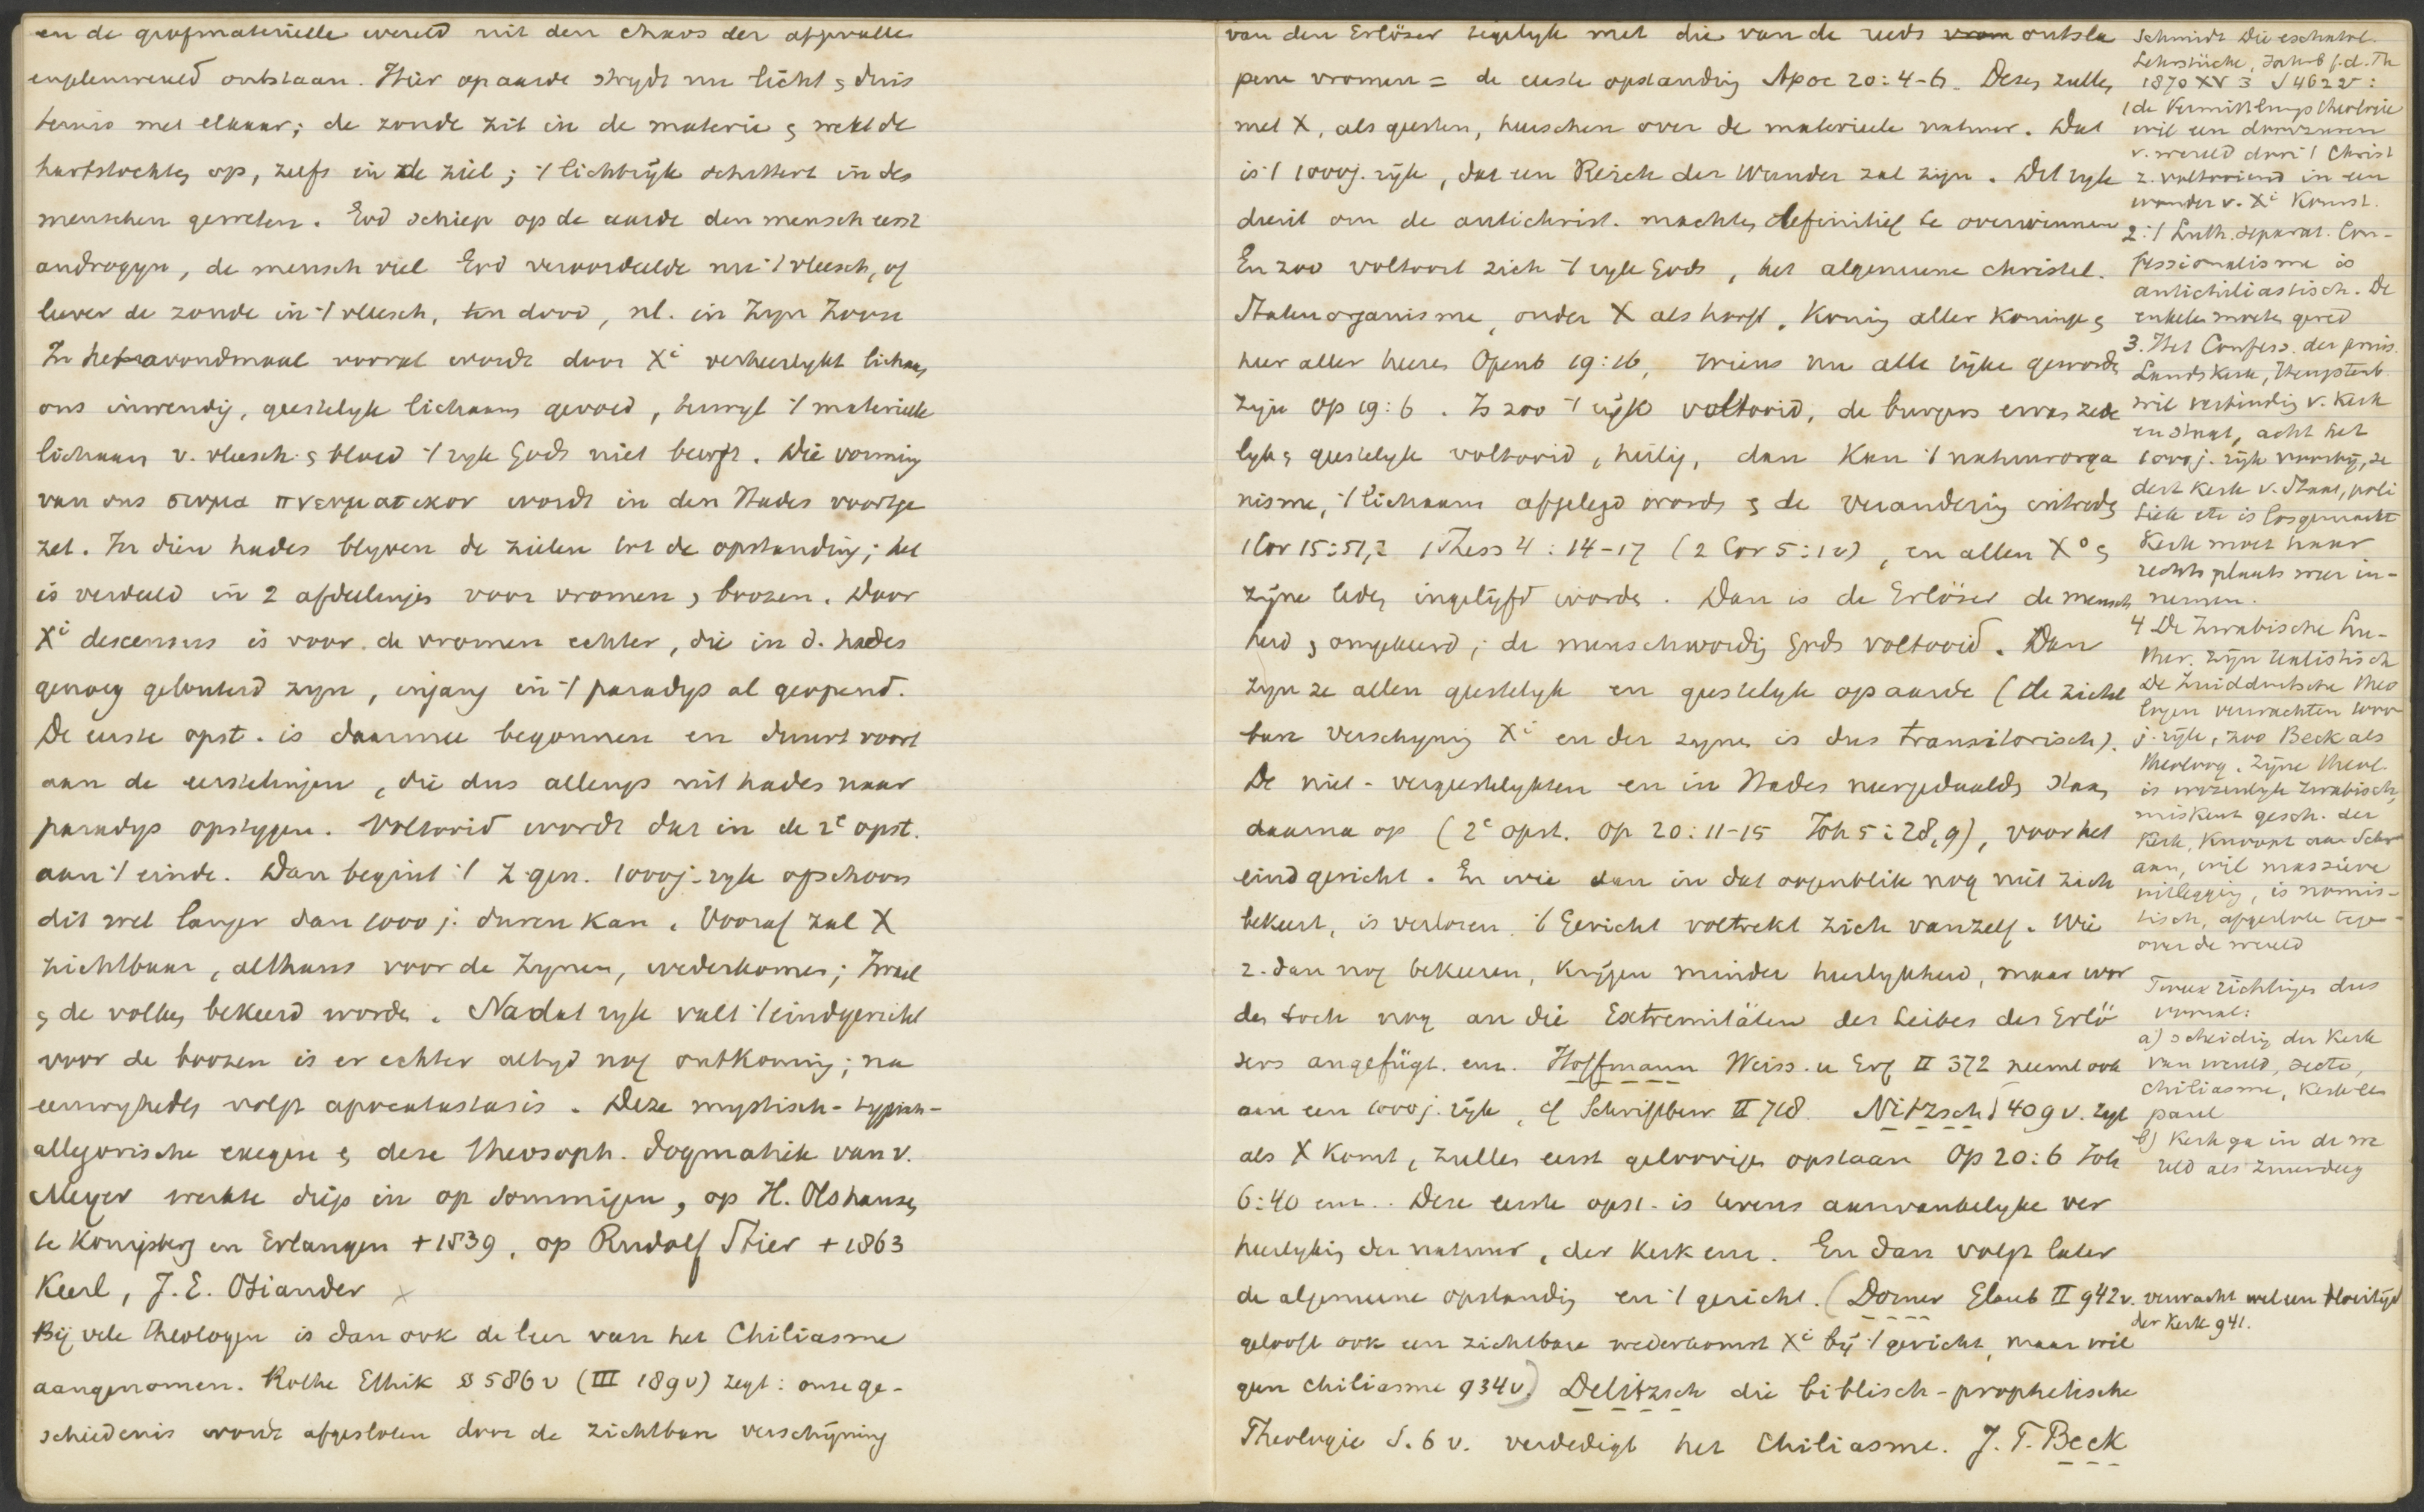 en de grofmaterielle wereld uit den chaos der afgevalle
engelenwereld ontstaan. Hier op aarde strydt nu licht & duis
ternis met elkaar; de zonde zit in de materie & wekt de
hartstochten op, zelfs in de ziel; 't lichtrijk schittert in des
menschen geweten. God schiep op de aarde den mensch eerst
androgyn, de mensch viel God veroordeelde nu 't vleesch, of
liever de zonde in 't vleesch, ten dood, nl. in Zyn Zoon
In het avondmaal vooral wordt door Xi verheerlykt lichaam
ons inwendig, geestelyk lichaam gevoed, terwyl 't materielle
lichaam v. vleesch & bloed 't ryk Gods niet beerft. Die vorming
van ons σωμα πνευματικον wordt in den Hades voortge
zet. In dien hades blyven de zielen tot de opstanding; het
is verdeeld in 2 afdeelingen voor vromen & boozen. Door
Xi descensus is voor de vromen echter, die in d. hades
genoeg gelouterd zyn, ingang in 't paradys al geopend.
De eerste opst. is daarmee begonnen en duurt voort
aan de eerstelingen, die dus allengs uit hades naar
paradys opstygen. Voltooid wordt dat in de 2e opst.
aan 't einde. Dan begint 't z.gen. 1000j.ryk ofschoon
dit wel langer dan 1000 j. duren kan. Vooraf zal X
zichtbaar, althans voor de Zynen, wederkomen; Israel
& de volken bekeerd worden. Na dat ryk valt 't eindgericht
voor de boozen is er echter altyd nog ontkoming; na
eeuwigheden volgt apocatastasis. Deze mystisch-typisch-
allegorische exegese & deze theosoph. dogmatiek van v.
Meyer werkte diep in op sommigen, op H. Olshausen
te Konigsberg en Erlangen + 1839, op Rudolf Stier + 1863
Keerl, J. E. Osiander ×
Bij vele theologen is dan ook de leer van het Chiliasme
aangenomen. Rothe Ethik §§ 586 v (III 189v) zegt: onze ge-
schiedenis wordt afgesloten door de zichtbare verschijning
van den Erlöser tegelyk met die van de reeds vrom ontsla
pene vromen = de eerste opstanding Apoc 20:4-6. Dezen zullen
met X, als geesten, heerschen over de materieele natuur. Dat
is 't 1000j. ryk, dat een Reich der Wunder zal zijn. Dit ryk
dient om de antichrist. machten definitief te overwinnen
En zoo voltooit zich 't ryk Gods, het algemeene christel.
Statenorganisme, onder X als hoofd, Koning aller Koningen &
heer aller heeren Openb 19:16, wiens nu alle rijken geworden
zyn Op 19:6. Is zoo 't rijk voltooid, de burgers ervan zede
lyk & geestelyk voltooid, heilig, dan kan 't natuurorga
nisme, 't lichaam afgelegd worden & de verandering intreden
1 Cor 15:51,2 1 Thess 4:14-17 (2 Cor 5:1v), en allen Xo &
zijne leden ingelijfd worden. Dan is de Erlöser de mensch
heid & omgekeerd; de menschwording Gods voltooid. Dan
zyn ze allen geestelyk en geestelyk op aarde (de zicht
bare verschyning Xi en der zynen is dus transitorisch).
De niet-vergeestelykten en in Hades neergedaalden staan
daarna op (2e opst. Op 20:11-15 Joh 5:28,9), voor het
eindgericht. En wie dan in dat oogenblik nog niet zich
bekeert, is verloren. 't Gericht voltrekt zich vanzelf. Wie
z. dan nog bekeeren, krijgen minder heerlykheid, maar wor
den toch nog an die Extremitäten des Leibes des Erlö
sers angefügt. enz. Hoffmann Weiss. u Erf II 372 neemt ook
aan een 1000j. rijk, cf Schriftbew II 718. Nitzsch § 409 v. zegt
als X komt, zullen eerst geloovigen opstaan Op 20:6 Joh
6:40 enz.. Deze eerste opst. is tevens aanvankelyke ver
heerlyking der natuur, der kerk enz. En dan volgt later
de algemeene opstanding en 't gericht. (Dorner Glaub II 942v. verwacht wel een bloeitijd
der Kerk 941.
gelooft ook een zichtbare wederkomst Xi bij 't gericht, maar wil
geen chiliasme 934v.) Delitzsch die biblisch-prophetische
Theologie S. 6 v. verdedigt het Chiliasme. J. T. Beck
Schmidt Die eschatol.
Lehrstücke, Jahrb f. d. Th
1870 XV 3 S 462 v:
1 de Vermittlungstheologie
wil een doorzuren
v. wereld door 't Christ
z. voltooiend in een
wonder v. Xi Komst.
2. 't Luth. separat. Con-
fessionalisme is
antichiliastisch. De
enkelen moeten gered
3. Het Confess. der pruis.
Landskerk, Hengstenb.
wil verbinding v. Kerk
en Staat, acht het
1000j. rijk voorbij, se
dert Kerk v. Staat, poli
tiek etc is losgemaakt
Kerk moet haar
rechte plaats weer in-
nemen.
4 De Zwabische Lu-
ther. zijn realistisch
De Zuidduitsche theo
logen verwachten 1000
j. rijk, zoo Beck als
theoloog. Zijne theol.
is wezenlyk Zwabisch,
miskent gesch. der
Kerk, knoopt aan Schr
aan, wil massieve
uitlegging, is nomis-
tisch, afgesloten tege-
over de wereld
Twee richtingen dus
vooral:
a) scheiding der Kerk
van wereld, secte,
chiliasme, Kerk ec
paul
b) Kerk ga in de we
reld als zuurdeeg